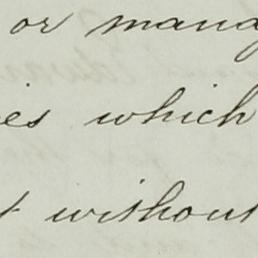 or many
es which
t without